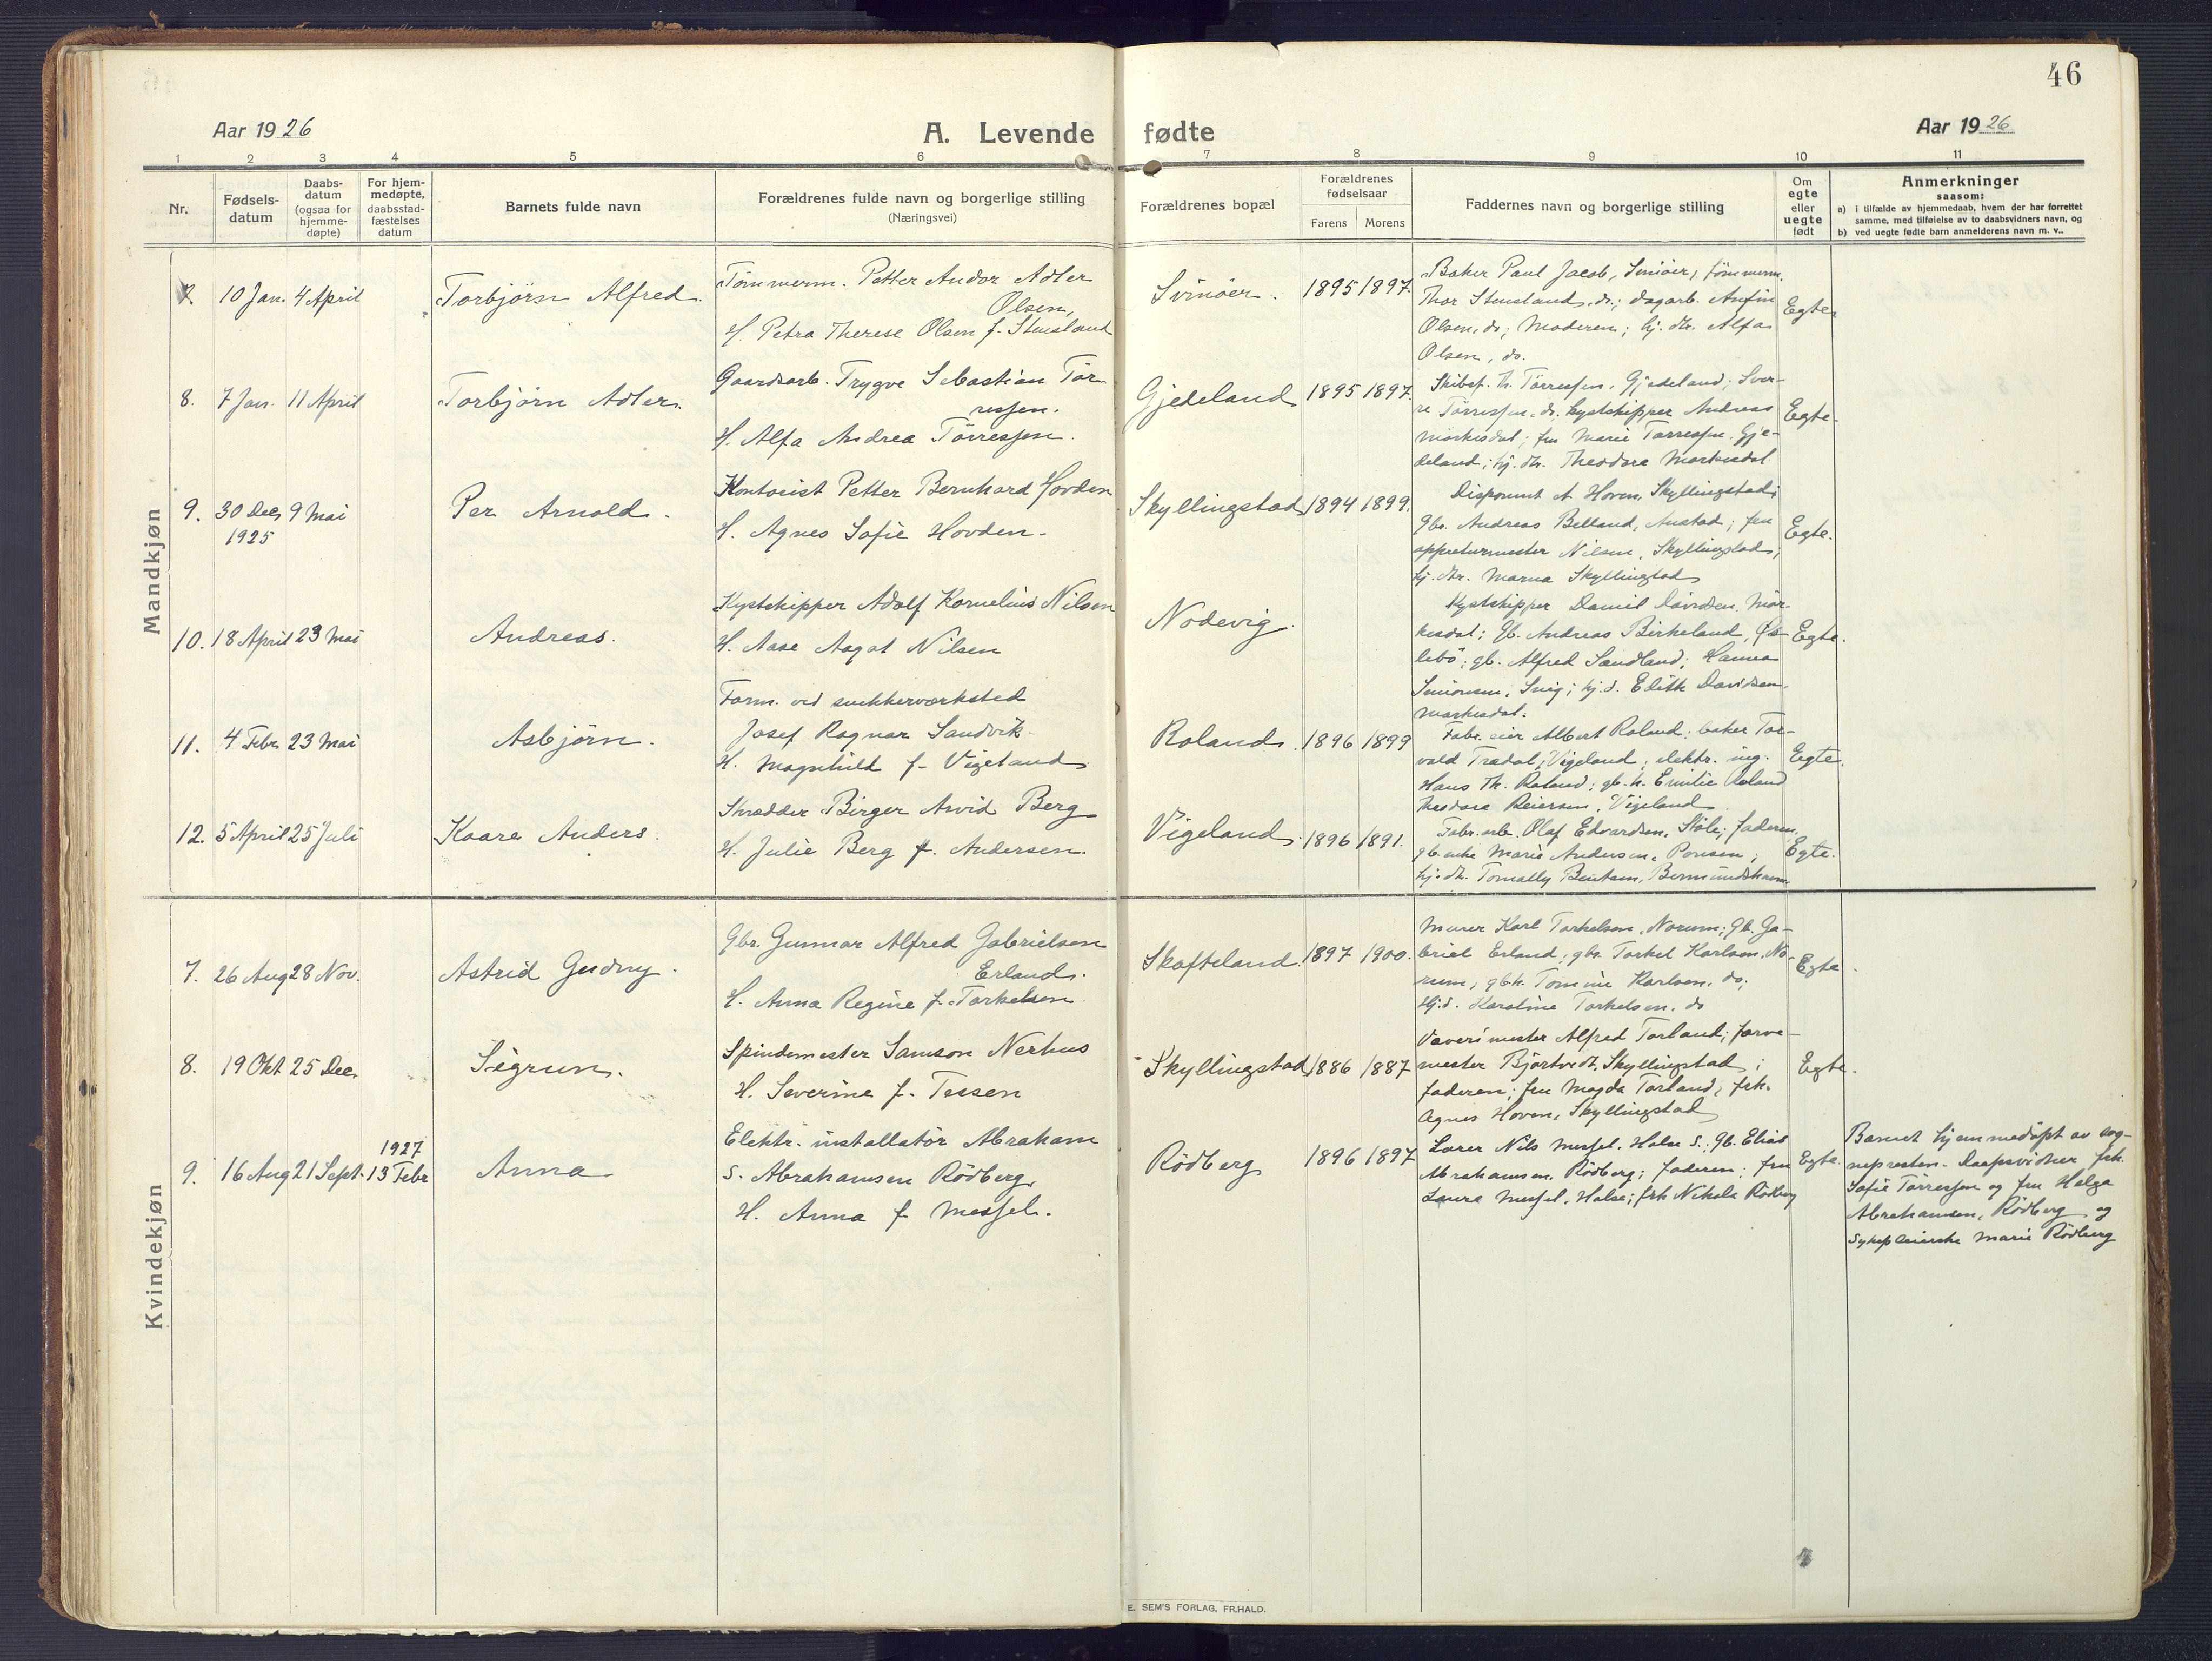 46
Aar 1926
A. Levende fødte
Aar 1926
1 2 3 4 5 6 7 8 9 10 11
Nr.
Fødsels-
datum
Daabs-
datum
(ogsaa for
hjemme-
døpte)
For hjem-
medøpte,
daabsstad-
fæstelses
datum
Barnets fulde navn
Forældrenes fulde navn og borgerlige stilling
(Næringsvei)
Forældrenes bopæl
Forældrenes
fødselsaar
Farens Morens
Faddernes navn og borgerlige stilling
Om
egte
eller
uegte
født
Anmerkninger
saasom:
a) i tilfælde av hjemmedaab, hvem der har forrettet
samme, med tilføielse av to daabsvidners navn, og
b) ved uegte fødte barn anmelderens navn m. v..
Mandkjøn
7. 10 Jan. 4 April
Torbjörn Alfred.
Tömmerm. Petter Andor Adler
Olsen,
H. Petra Therese Olsen f. Stensland
Svinöer.
1895 1897.
Baker Paul Jacob, Svinöer; tömmerm.
Thor Stensland, do; dagarb. Anfin
Olsen, do; Moderen; hj. dtr. Alfa
Olsen, do.
Egte.
8. 7 Jan. 11 April
Torbjörn Adler.
Gaardsarb. Trygve Sebastian Tör-
ressen.
H. Alfa Andrea Törressen.
Gjedeland
1895 1897.
Skibsf. Törressen, Gjedeland; Sver-
re Törressen, do. kystskipper Andreas
Mörkesdal; fru Marie Törressen, Gje-
deland; hj. dtr. Theodora Mörkesdal
Egte.
9. 30 Des. 9 Mai
1925
Per Arnold.
Kontorist Petter Bernhard Hovden
H. Agnes Sofie Hovden.
Skyllingstad
1894 1899.
Disponent A Hoven, Skyllingstad;
gbr. Andreas Belland, Austad; fru
appreturmester Nilsen, Skyllingstad;
hj. dtr. Marna Skyllingstad
Egte.
10. 18 April 23 Mai
Andreas.
Kystskipper Adolf Kornelius Nilsen
H. Aase Aagot Nilsen
Nodevig.
Kystskipper Daniel Davidsen, Mör-
kesdal; gb. Andreas Birkeland, Øs-
lebö; gb. Alfred Sandland; Hanna
Simonsen, Snig; hj. d. Edith Davidsen,
Mörkesdal.
Egte.
11. 4 Febr. 23 Mai
Asbjörn.
Form. ved snekkerværksted
Josef Ragnar Sandvik
H. Magnhild f. Vigeland
Roland.
1896 1899
Fabr. eier Albert Roland; baker Tor-
vald Trædal, Vigeland; elektr. ing.
Hans Th. Roland; gb. k. Emilie Roland
Theodora Reiersen, Vigeland.
Egte.
12. 5 April 25 Juli
Kaare Anders.
Skrædder Birger Arvid Berg
H. Julie Berg f. Andersen.
Vigeland.
1896 1891.
Fabr. arb. Olaf Edvardsen, Støle; faderen,
gb. enke Marie Andersen,
hj. dtr. Tomally
Egte.
Kvindekjøn
7. 26 Aug 28 Nov.
Astrid Gudny.
Gbr. Gunnar Alfred Gabrielsen
Erland.
H. Anna Regine f. Torkelsen
Skofteland.
1897 1900.
Murer Karl Torkelsen, Norum; gb. Ga-
briel Erland; gbr. Torkel Karlsen, No-
rum; gbk. Tommine Karlsen, do;
Hj. d. Karoline Torkelsen, do
Egte.
8. 19 Okt 25 Des.
Sigrun.
Spindemester Samson Nerhus
H. Severine f. Tessen
Skyllingstad
1886 1887
Væverimester Alfred Torland; farve-
mester Bjortvedt, Skyllingstad;
faderen; fru Magda Torland, frk.
Agnes Hoven, Skyllingstad
Egte.
9. 16 Aug 21 Sept.
1927
13 Febr
Anna
Elektr. installatör Abraham
S. Abrahamsen Rödberg,
H. Anna f. Messel.
Rödberg
1896 1897
Lærer Nils Messel, Halse S.; gb. Elias
Abrahamsen, Rödberg; faderen; fru
Laura Messel, Halse; frk Nikola Rödberg
Egte.
Barnet hjemmedöpt av sog-
nepresten. Daapsvidner frk.
Sofie Törressen og fru Helga
Abrahamsen, Rödberg og
sykepleierske Marie Rödberg
E. SEM'S FORLAG, FR.HALD.